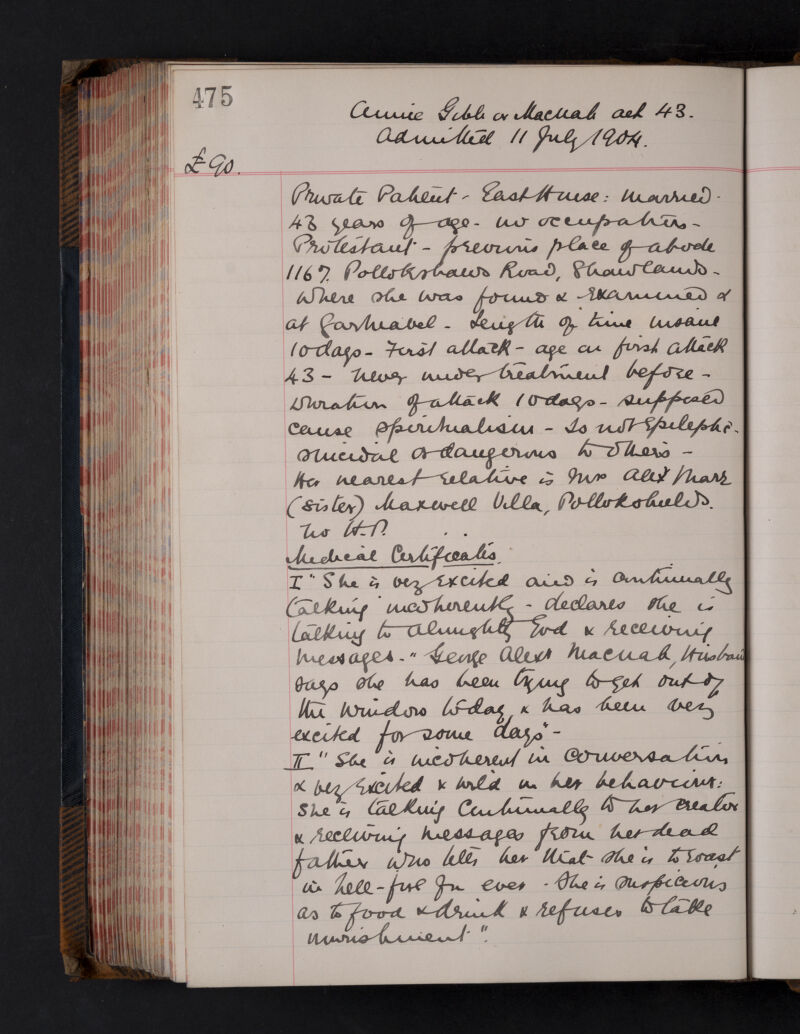 475
Annie Gibb or Macnab aet 43.
Admitted 11 July 1904.
£90.
Private Patient - East House: married -
43 years of age - no occupation -
Protestant - previous place of abode
1167 Pollokshaws Road, Shawlands -
where she was found & examined &
at Gartnavel - Length of time insane
10 days - First attack - age on first attack
43 - never under treatment before -
Duration of attack 10 days - supposed
cause spiritualism - Is not Epileptic.
suicidal or dangerous to others -
Her nearest relative is Mrs Alex Marr
(sister) Maxwell Villa, Pollokshields.
No H.P.
Medical Certificates.
I "She is very excited and is continually
talking incoherently - declares she is
talking to Almighty God & receiving
messages - " George Alexr Macnab, Husband
says she has been trying to get out of
the window today & has been very
excited for some days" -
II "She is incoherent in conversation
& very excited & wild in her behaviour:
she is talking continually to her creator
& receiving messages from her dead
father who tells her that she is to roast
in hell-fire for ever - She is suspicious
as to food & drink & refuses to take
nourishment".